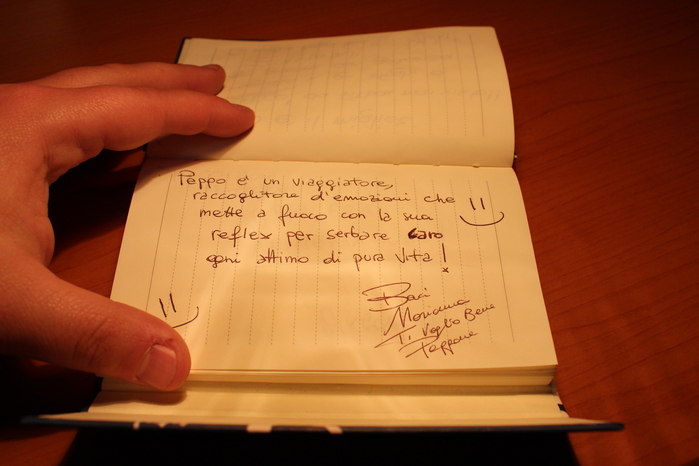 Peppo e' un viaggiatore,
raccoglitore d'emozioni che
mette a fuoco con la sua
reflex per serbare caro
ogni attimo di pura vita!
Baci
Morianna
Ti Voglio Bene
Peppone